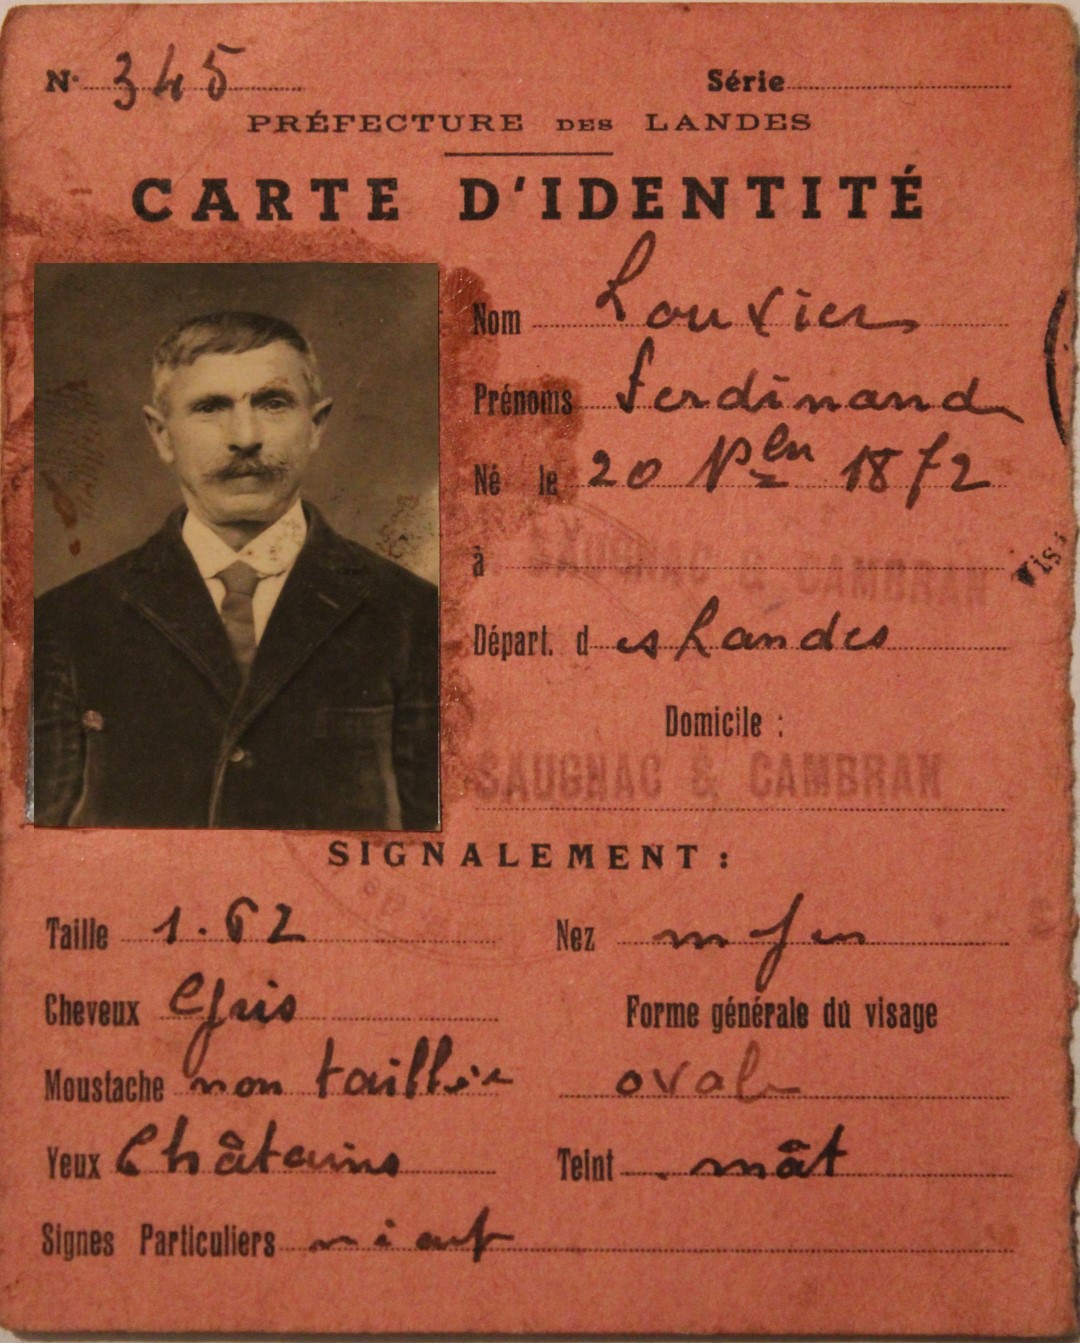 N° 345 Série
PRÉFECTURE DES LANDES
CARTE D'IDENTITÉ
Nom Louvier
Prénoms Ferdinand
Né le 20 9bre 1872
à SAUGNAC & CAMBRAN
Départ. des Landes
Domicile :
SAUGNAC & CAMBRAN
SIGNALEMENT :
Taille 1.62
Nez moyen
Cheveux Gris
Forme générale du visage
Moustache non taillée
ovale
Yeux Châtains
Teint mât
Signes Particuliers néant